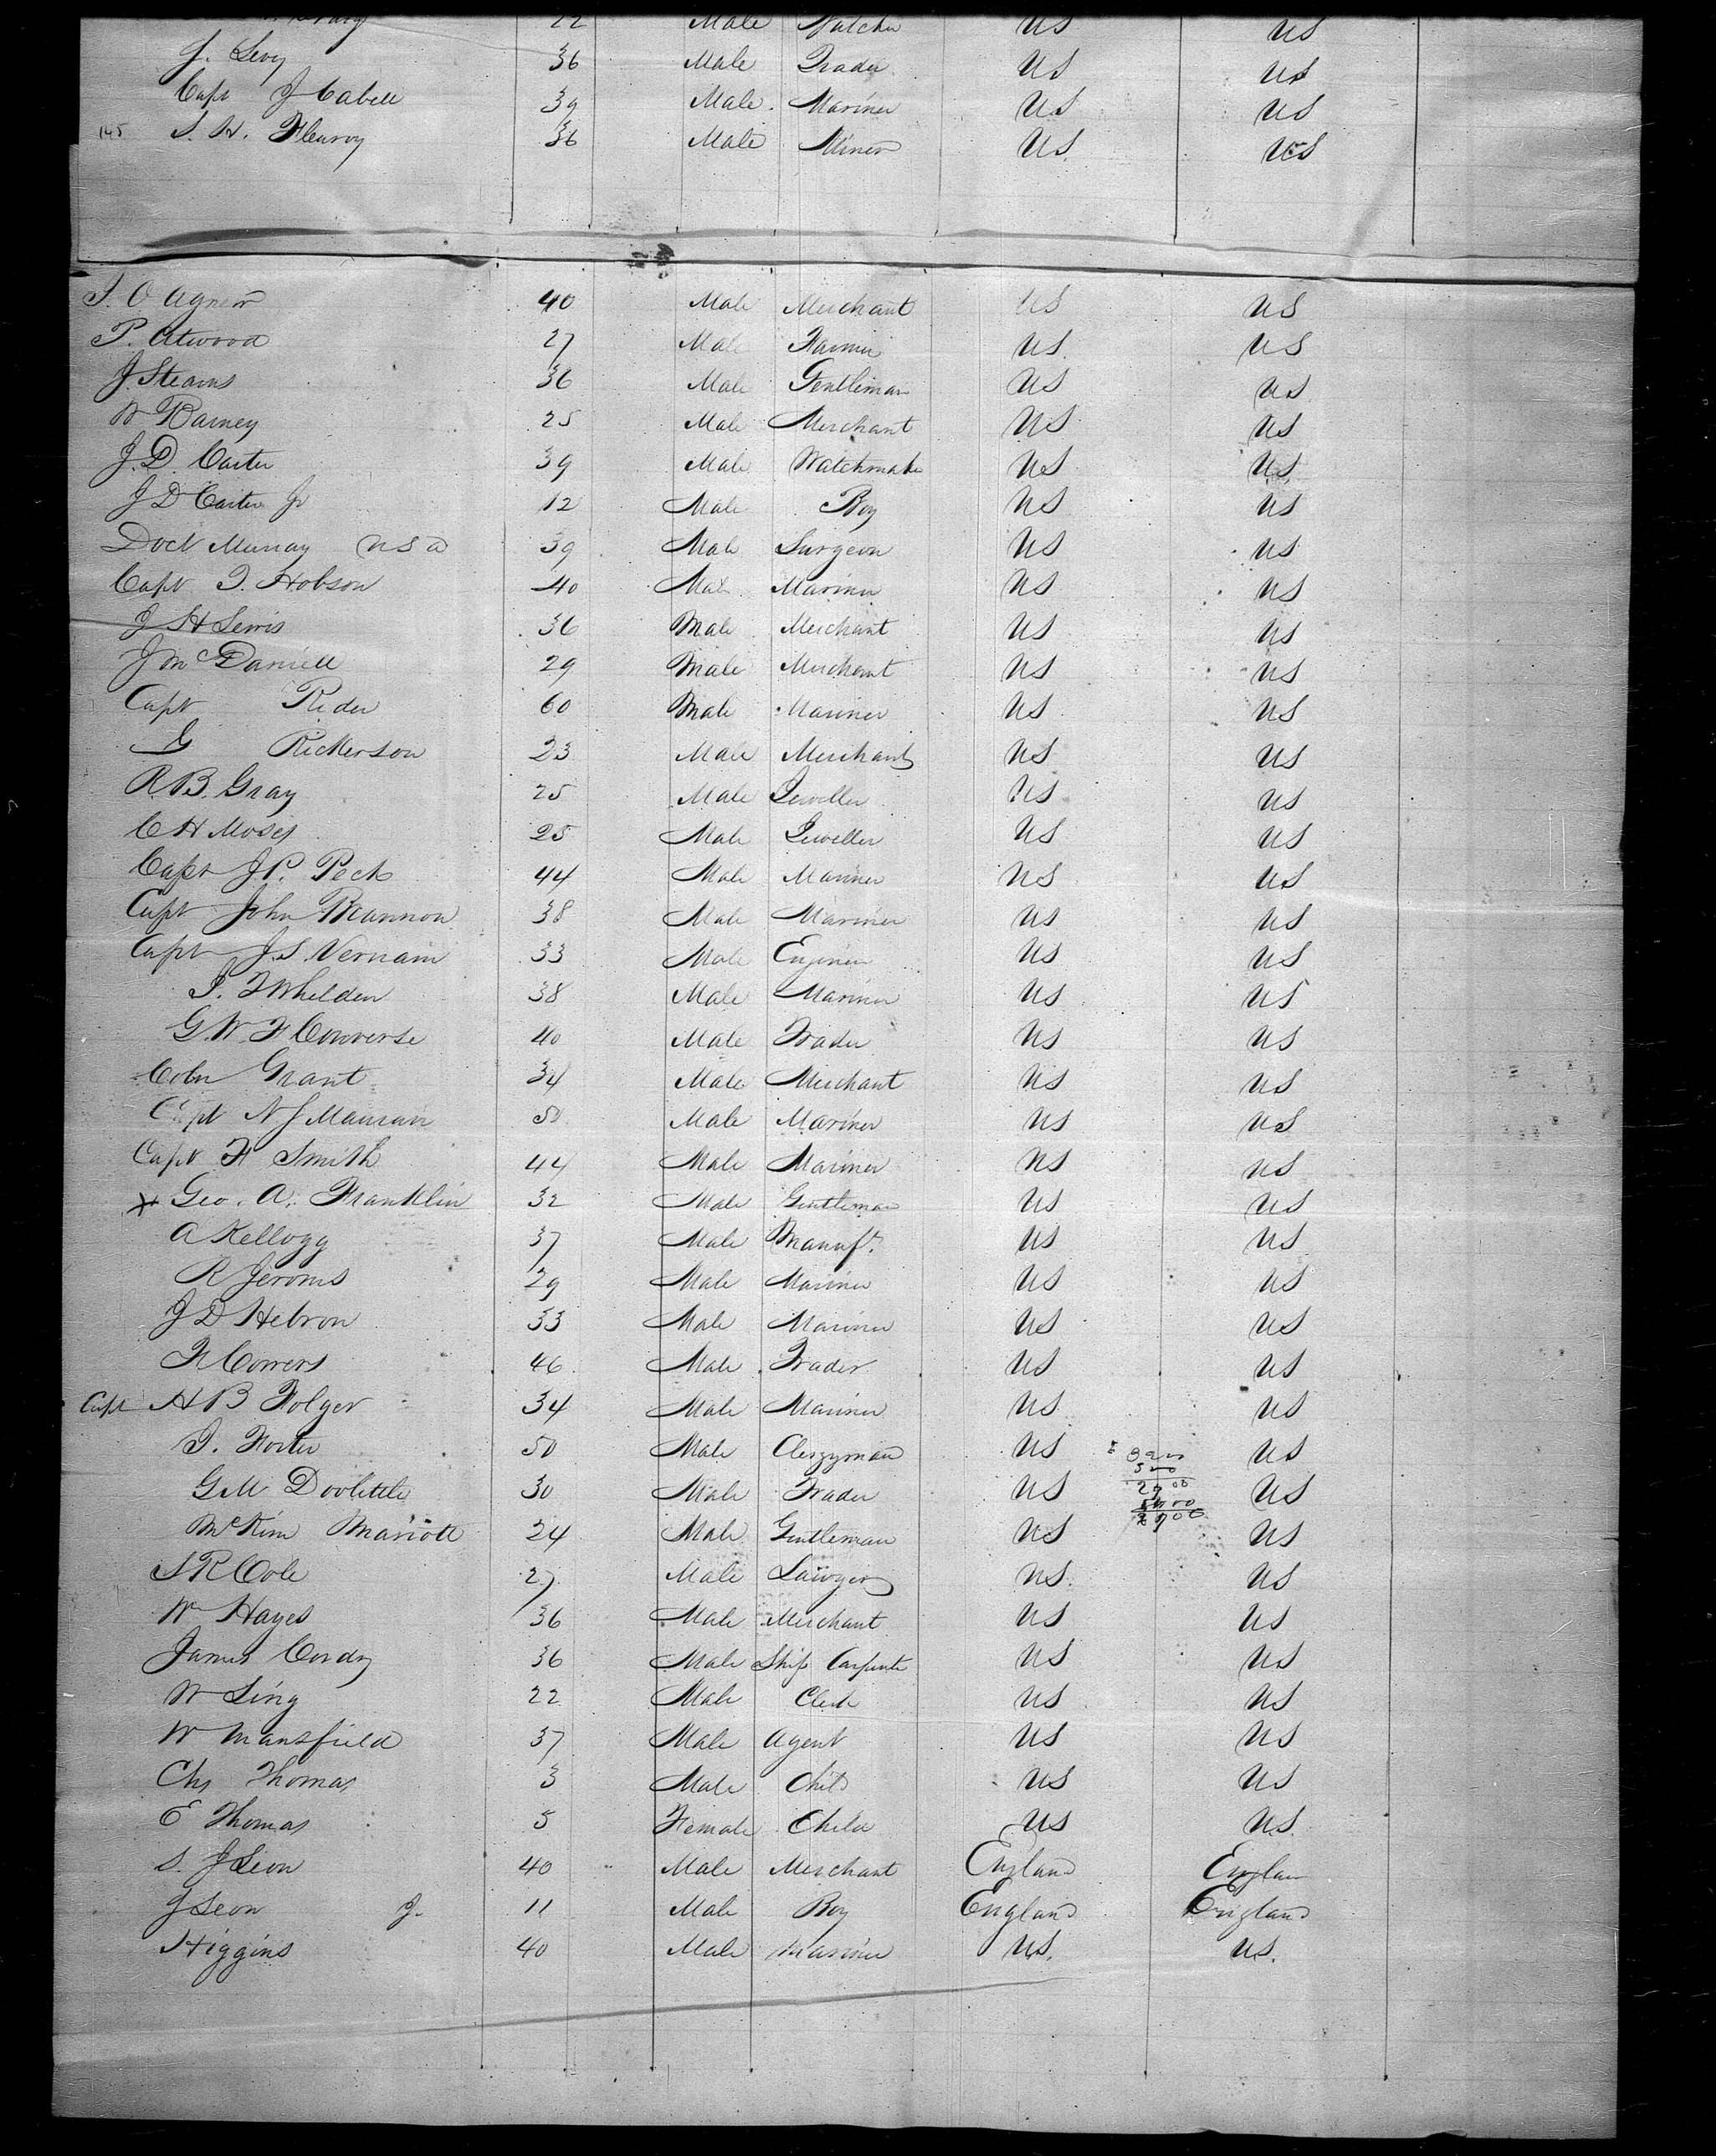 22 Male US US
J. Levy 36 Male Trader US US
Capt J Cabell 39 Male Mariner US US
145 S. H. Fleuroy 36 Male Miner US US
S. O Agnew 40 Male Merchant US US
P. Atwood 27 Male Farmer US US
J Stearns 36 Male Gentleman US US
W Barney 25 Male Merchant US US
J. D. Carter 39 Male Watchmaker US US
J D Carter Jr 12 Male Boy US US
Doct Murray U S A 39 Male Surgeon US US
Capt T. Hobson 40 Male Mariner US US
J H Lewis 36 Male Merchant US US
J McDaniell 29 Male Merchant US US
Capt Rider 60 Male Mariner US US
G Rickerson 23 Male Merchant US US
R. B. Gray 25 Male Jeweller US US
C H Moses 25 Male Jeweller US US
Capt J. P. Peck 44 Male Mariner US US
Capt John Brannon 38 Male Mariner US US
Capt J. S. Vernam 33 Male Engineer US US
J. F Whelden 38 Male Mariner US US
G. W. F Converse 40 Male Trader US US
Coln Grant 34 Male Merchant US US
Capt N J 50 Male Mariner US US
Capt F Smith 44 Male Mariner US US
x Geo. A. Franklin 32 Male Gentleman US US
A Kellogg 37 Male Manuft. US US
R Jeroms 29 Male Mariner US US
J D Hebron 33 Male Mariner US US
F Cowers 46 Male Trader US US
Capt H B Folger 34 Male Mariner US US
J. Porter 50 Male Clergyman US US
G M Doolittle 30 Male Trader US US
McKim Mariott 24 Male Gentleman US US
S R Cole 27 Male Lawyer US US
W Hayes 36 Male Merchant US US
James Cordy 36 Male Ship Carpenter US US
W Ling 22 Male Clerk US US
W Mansfield 37 Male Agent US US
Chs Thomas 3 Male Child US US
E Thomas 5 Female Child US US
S. J Leon 40 Male Merchant England Englan
J Leon J. 11 Male Boy England England
Higgins 40 Male Mariner US. US.